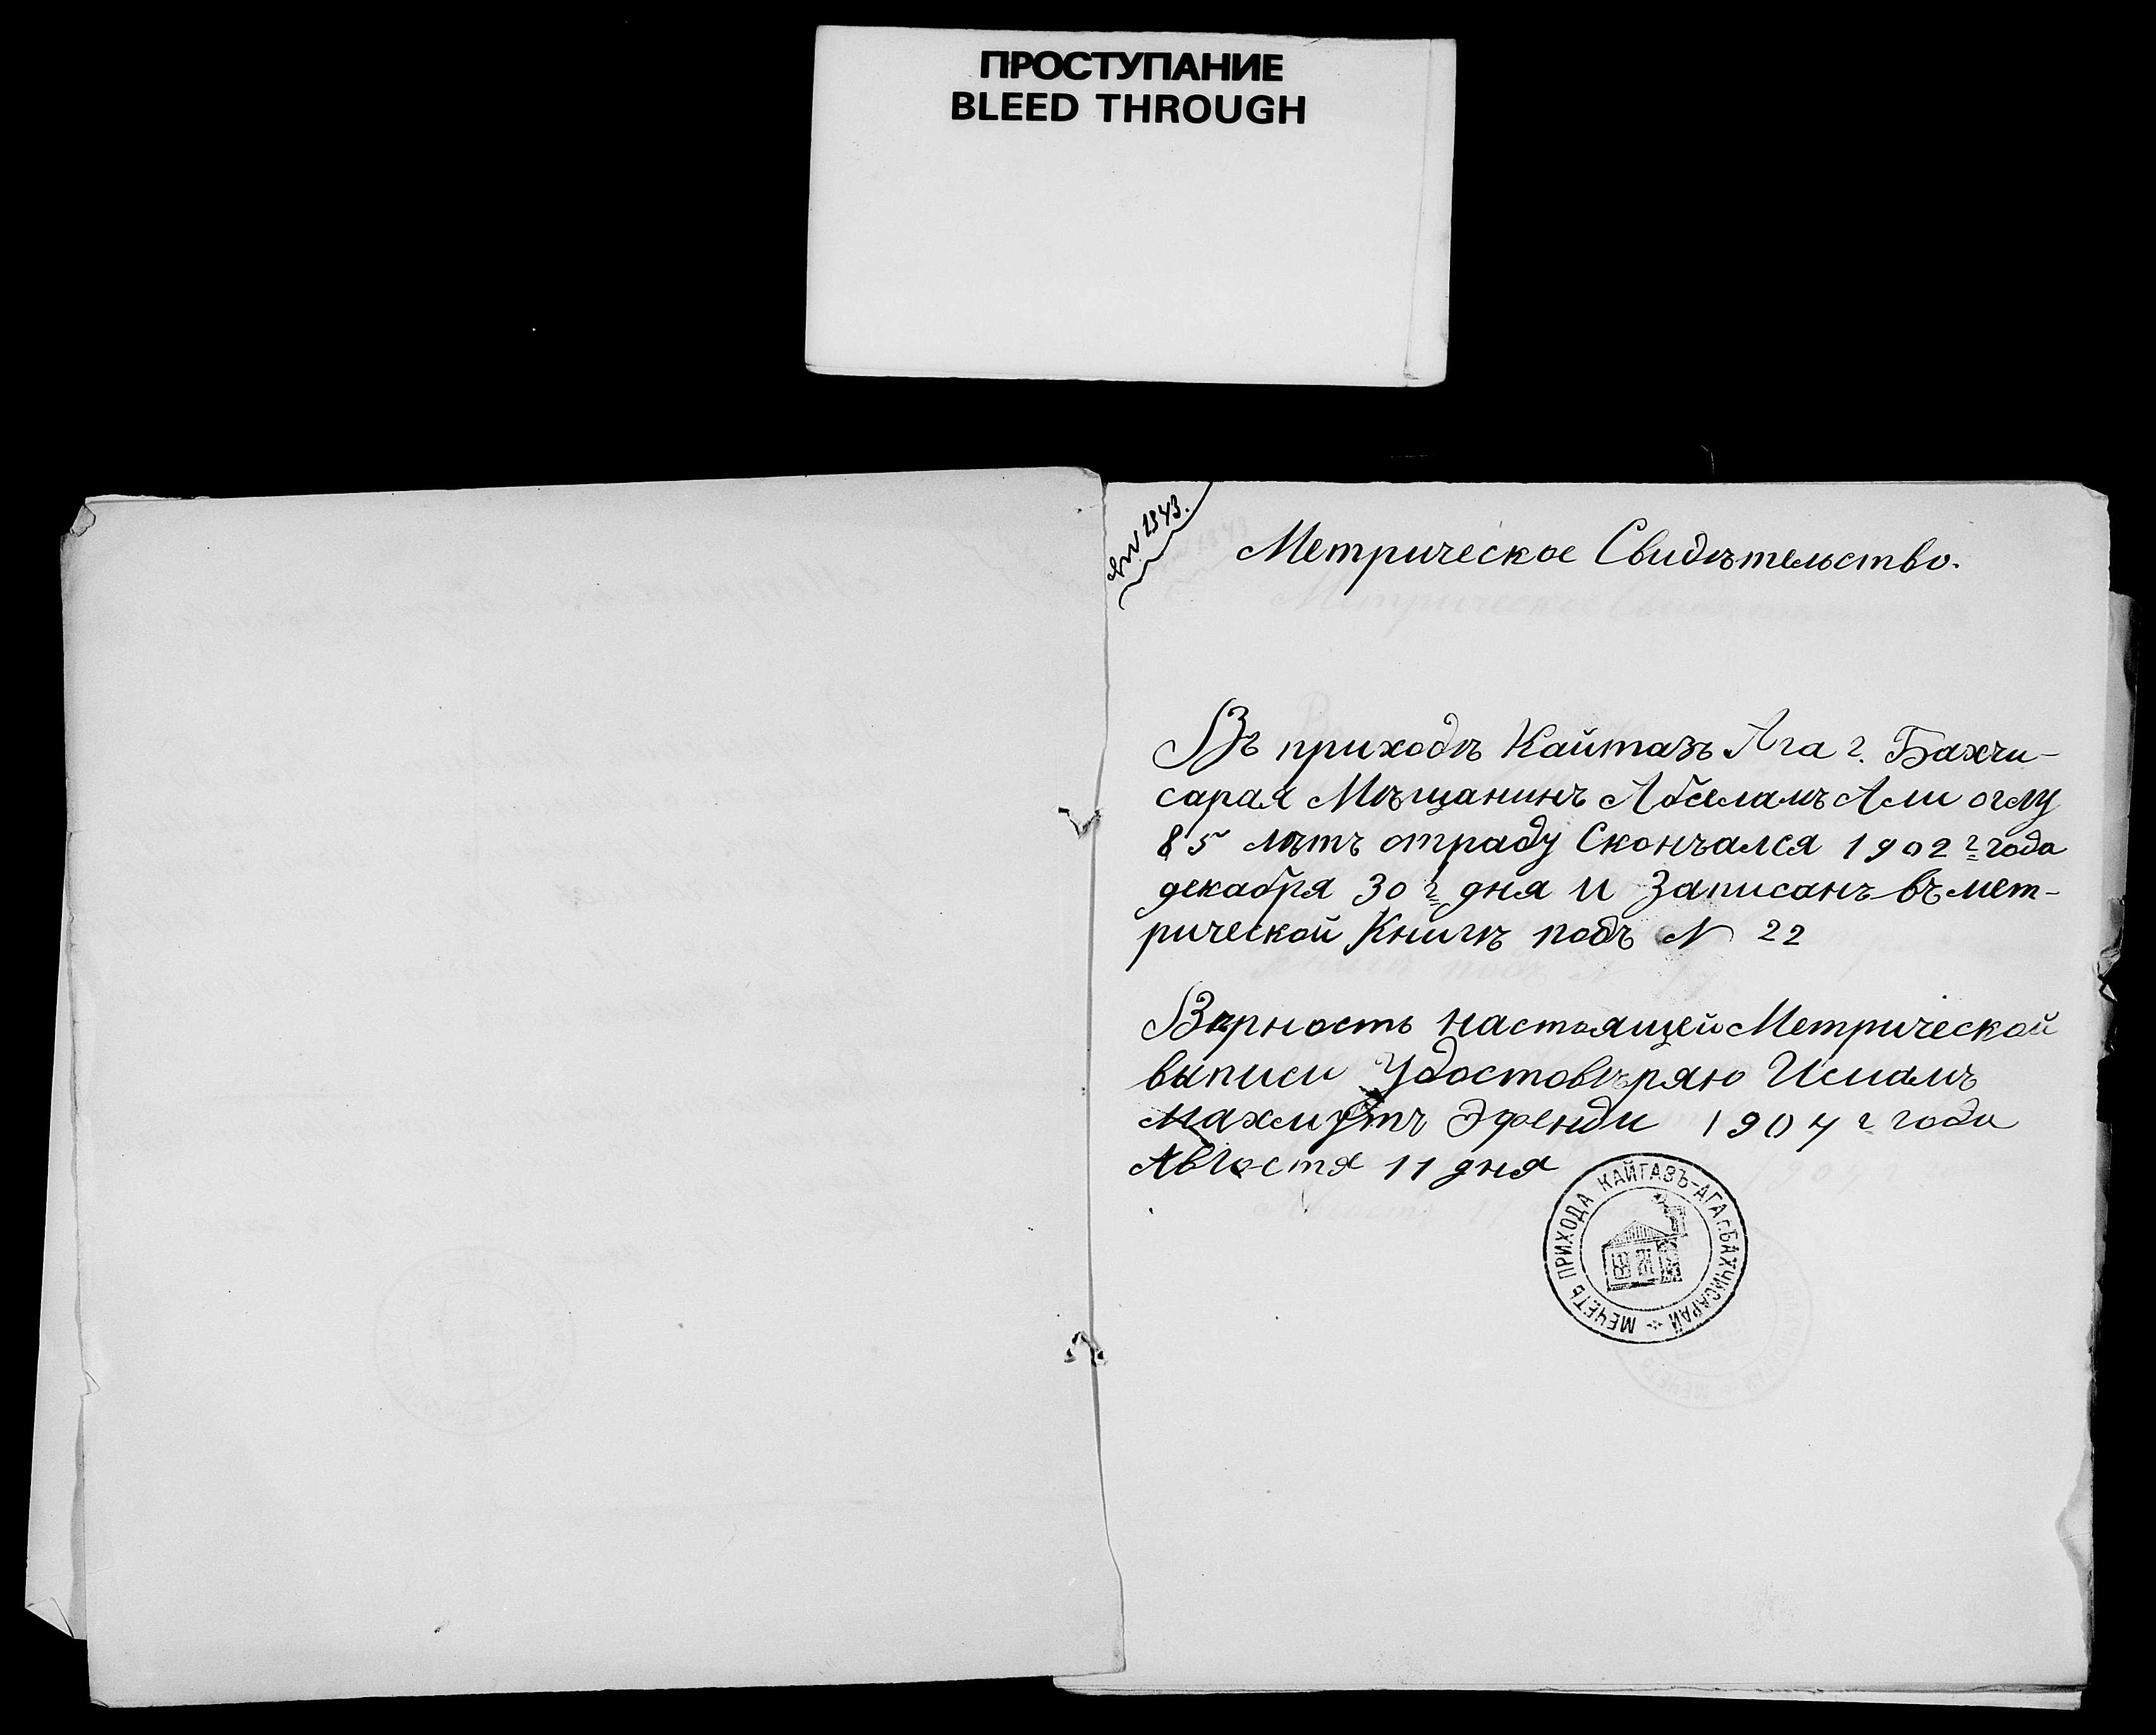 ПРОСТУПАНИЕ
BLEED THROUGH
№ 1343.
Метрическое Свидѣтельство.
Въ приходѣ Кайтазъ Ага г. Бахчи-
сарая Мѣщанинъ Абселамъ Али оглу
85 лѣтъ отраду Скончался 1902 г года
декабря 30 г дня и Записанъ въ мет-
рической Книгѣ подъ № 22
Вѣрность настоящей Метрической
выписи Удостовѣряю Исмамъ
Махмутъ Эфенди 1904 г года
Августа 11 дня
МЕЧЕТЬ ПРИХОДА КАЙГАЗЪ-АГА г. БАХЧИСАРАЙ